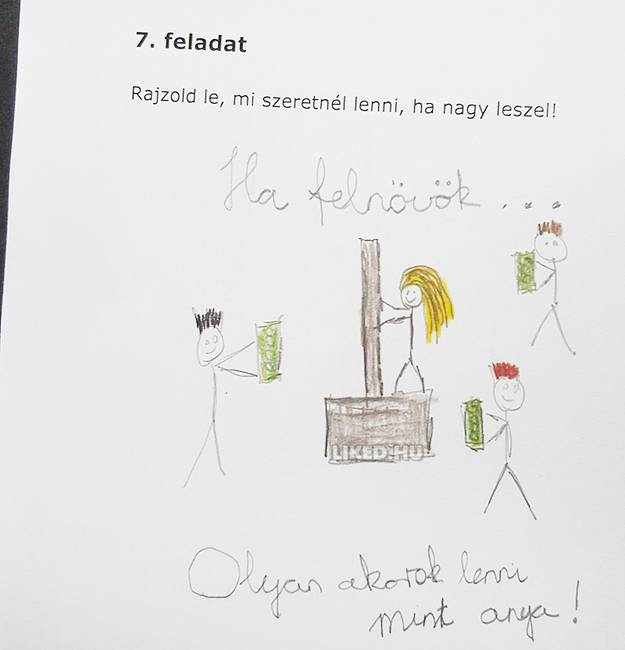 7. feladat
Rajzold le, mi szeretnél lenni, ha nagy leszel!
Ha felnövök . . .
LIKED.HU
Olyan akarok lenni
mint anya!